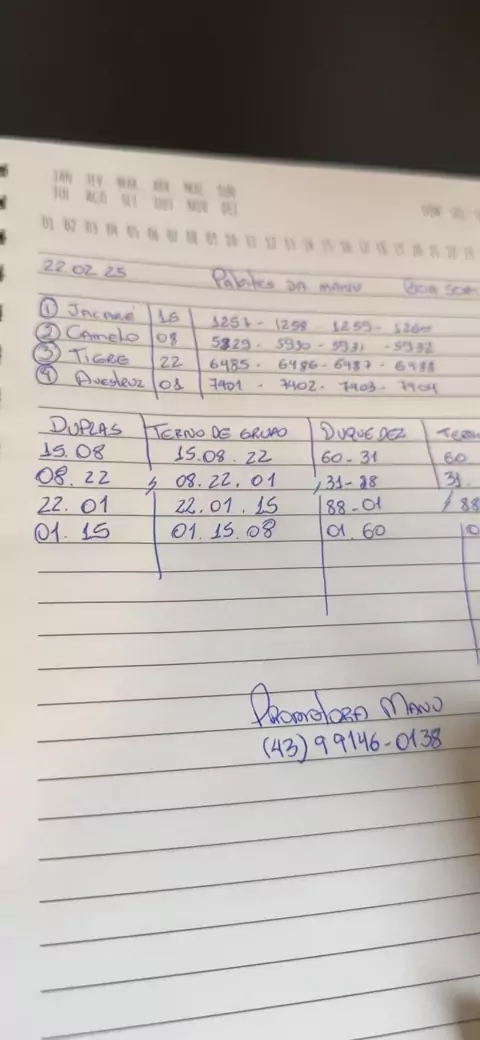 JAN FEV MAR ABR MAI JUN
JUL AGO SET OUT NOV DEZ
01 02 03 04 05 06 07 08 09 10 11 12 13 14 15 16 17 18 19
22 02 25 Palpites da Manu Boa
① Jacaré 15 1257 - 1258 - 1259 - 1260
② Camelo 08 5929 - 5930 - 5931 - 5932
③ Tigre 22 6485 - 6486 - 6487 - 6488
④ Avestruz 01 7401 - 7402 - 7403 - 7404
DUPLAS TERNO DE GRUPO DUQUE DEZ
15.08 15.08.22 60-31 60
08.22 08.22.01 31-88 31
22.01 22.01.15 88-01 88
01.15 01.15.08 01.60
Promotora Manu
(43) 99146-0138